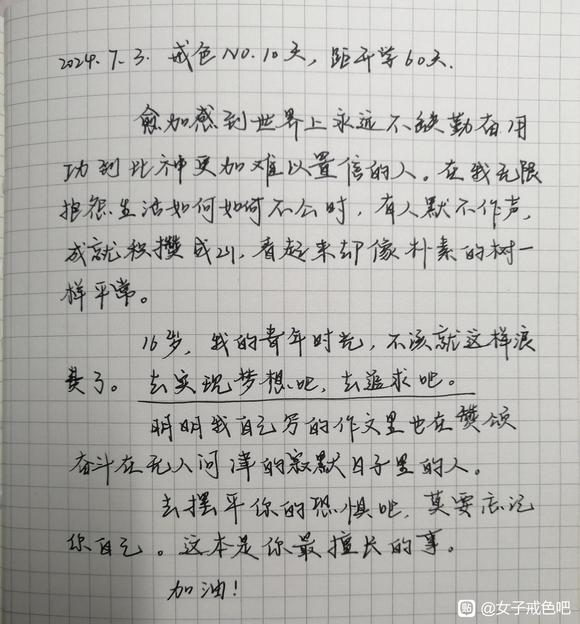 2024.7.3. 戒色NO.10天，距开学60天.
愈加感到世界上永远不缺勤奋用
功到比神更加难以置信的人。在我无限
抱怨生活如何如何不公时，有人默不作声，
成就积攒成山，看起来却像朴素的树一
样平常。
16岁，我的青年时光，不该就这样浪
费了。去实现梦想吧，去追求吧。
明明我自己写的作文里也在赞颂
奋斗在无人问津的寂默日子里的人。
去摆平你的恐惧吧，莫要忘记
你自己。这本是你最擅长的事。
加油！
贴 @女子戒色吧